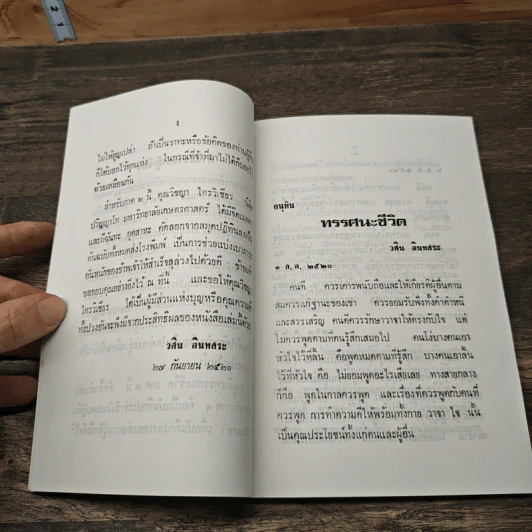 2
1
ง
ไม่ให้สูญเปล่า ถ้าเป็นวาทะหรือข้อคิดของท่านผู้
ก็ได้บอกไว้ทุกแห่ง ในกรณีที่จำที่มาไม่ได้ก็บอก
ด้วยเหมือนกัน
สำหรับภาค ๒ นี้ คุณวิชญา ไตรวิเชียร
ปริญญาโท มหาวิทยาลัยเกษตรศาสตร์ ได้มีจิต
และมีฉันทะ อุตสาหะ คัดลอกจากสมุดปฏิทินลงเป็น
ต้นฉบับทั้งหมดส่งโรงพิมพ์ เป็นการช่วยแบ่งเบาภาระ
อันหนักของข้าพเจ้าให้สำเร็จลุล่วงไปด้วยดี ข้าพเจ้า
ขอขอบคุณอย่างยิ่งไว้ ณ ที่นี้ และขอให้คุณวิชญา
ไตรวิเชียร ได้เป็นผู้มีส่วนแห่งบุญหรือคุณความดี
ทั้งปวงอันจะพึงมีจากประสิทธิผลของหนังสือเล่มนี้ด้วย
วศิน อินทสระ
๒๗ กันยายน ๒๕๓๐
อนุทิน
ทรรศนะชีวิต
วศิน อินทสระ
๑ ก.ค. ๒๕๒๐
คนดี ควรเคารพนับถือและให้เกียรติผู้อื่นตาม
สมควรแก่ฐานะของเขา ควรยอมรับฟังทั้งคำตำหนิ
และสรรเสริญ คนดีควรรักษาวาจาให้ตรงกับใจ แต่
ไม่ควรพูดตามที่ตนรู้สึกเสมอไป คนโง่บางคนเอา
หัวใจไว้ที่ลิ้น คือพูดหมดตามที่รู้สึก บางคนเอาลิ้น
ไว้ที่หัวใจ คือ ไม่ยอมพูดอะไรเสียเลย ทางสายกลาง
ก็คือ พูดในกาลควรพูด และเรื่องที่ควรพูดกับคนที่
ควรพูด การทำความดีให้พร้อมทั้งกาย วาจา ใจ นั้น
เป็นคุณประโยชน์ทั้งแก่ตนและผู้อื่น